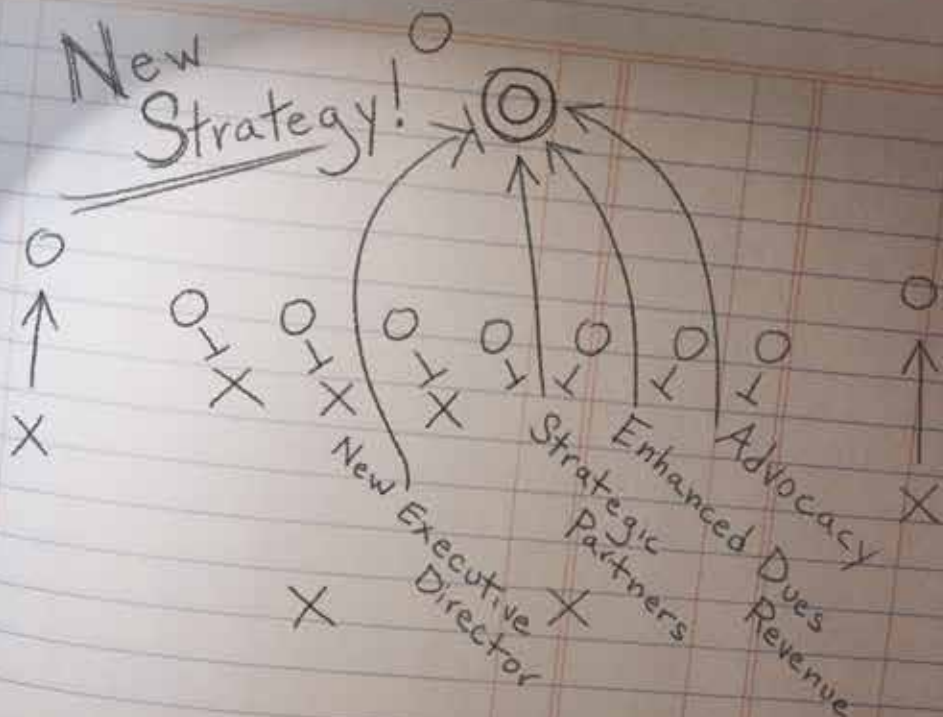 New
Strategy!
New Executive
Director
Strategic
Partners
Enhanced Dues
Revenue
Advocacy